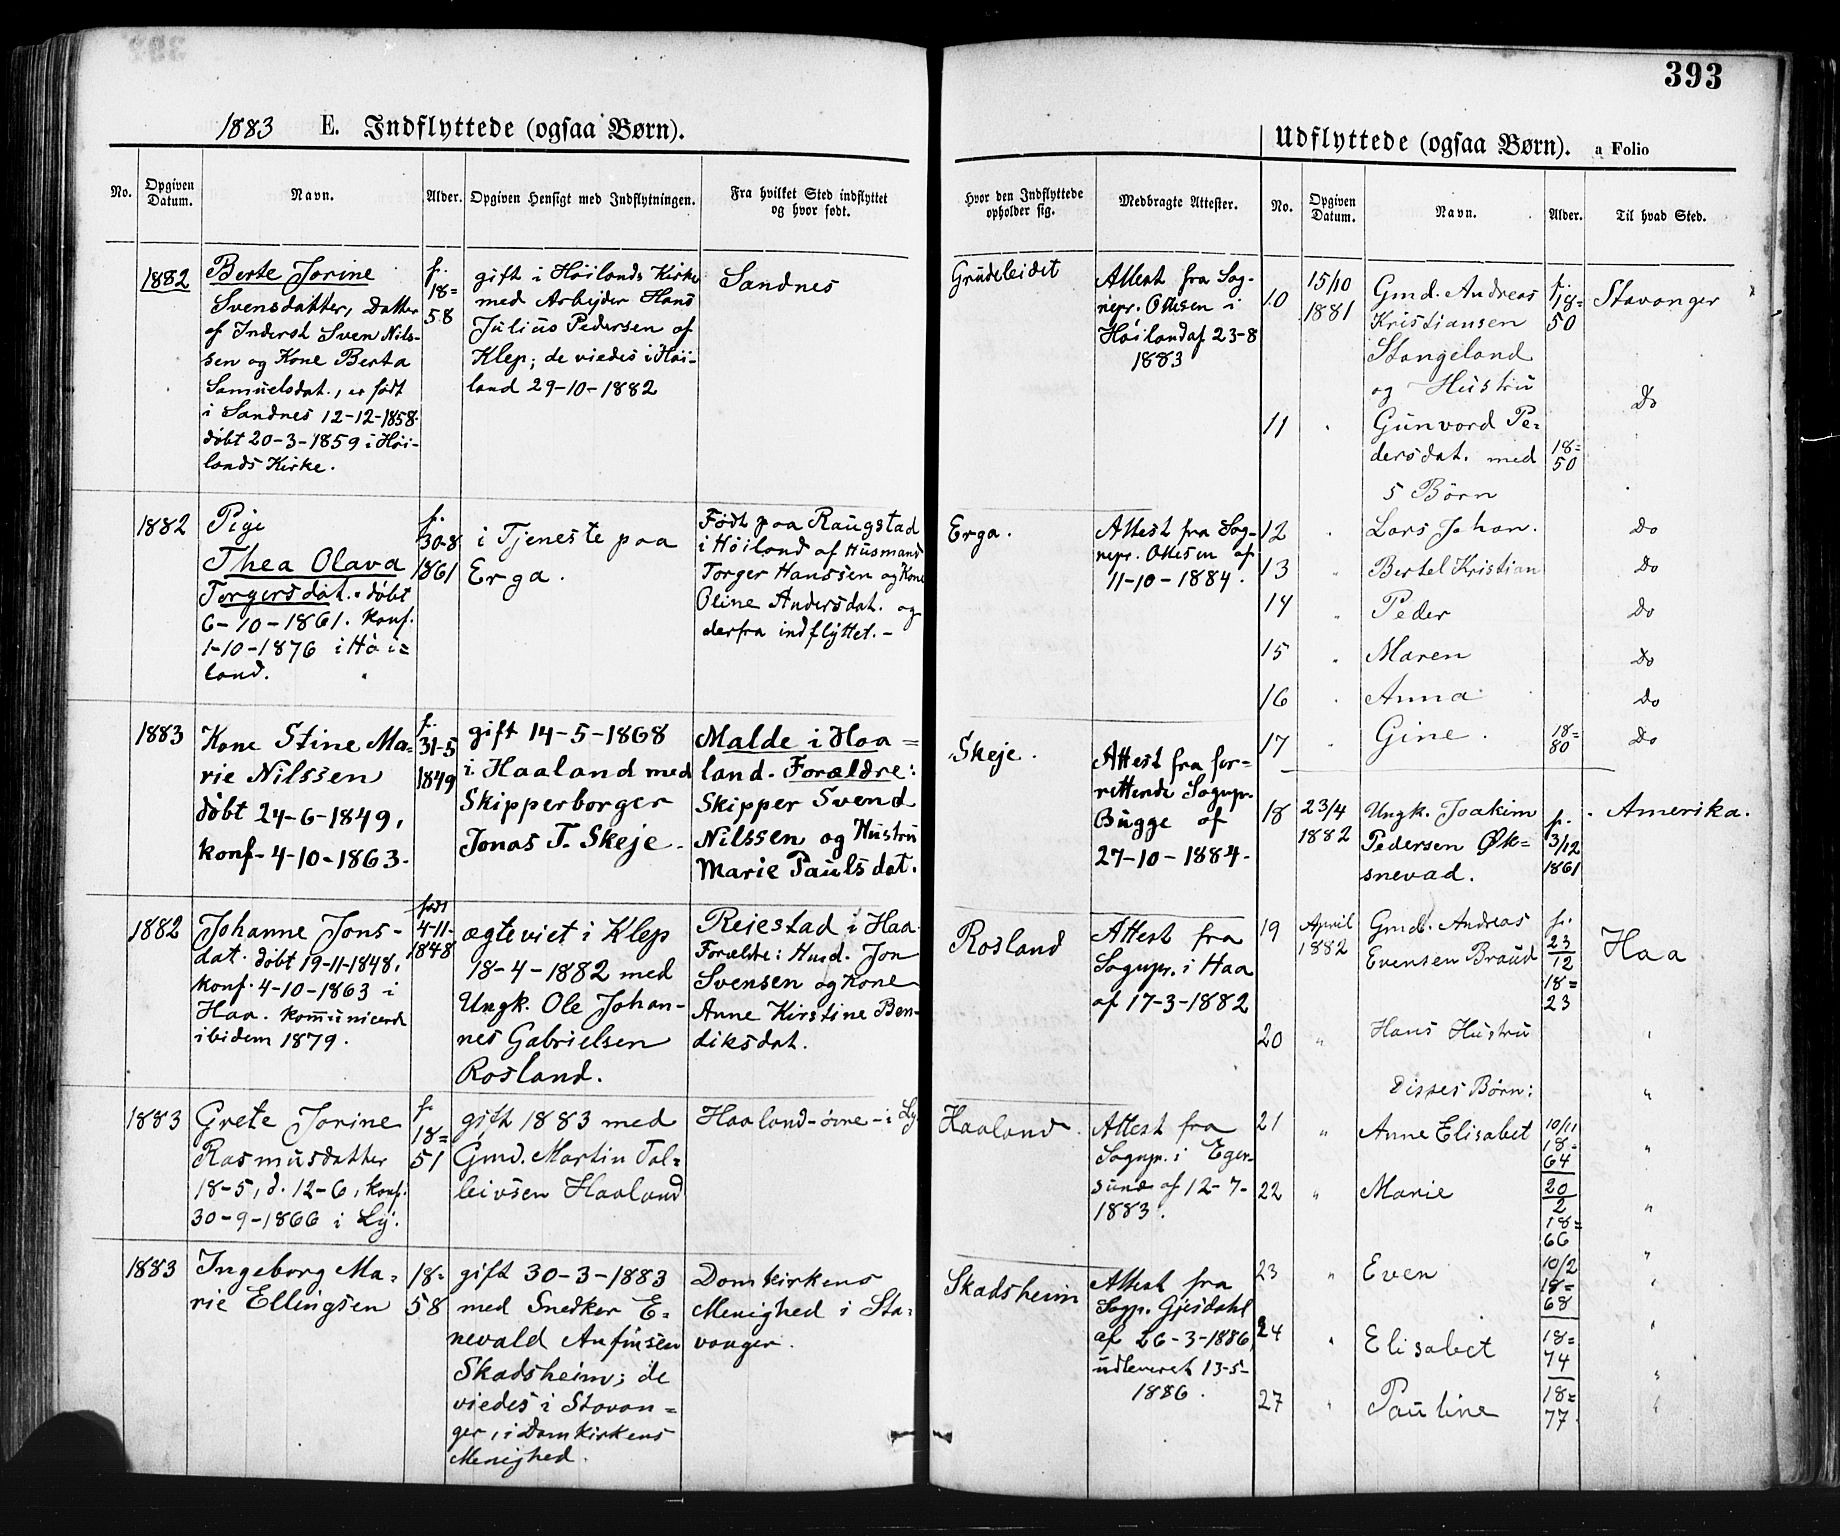 393
1883 E. Indflyttede (ogsaa Børn).
No.
Opgiven Datum.
Navn.
Alder.
Opgiven Hensigt med Indflytningen.
Fra hvilket Sted indflyttet
og hvor født.
1882
Berte Jorine
Svensdatter, Datter
af Inderst Sven Nils-
sen og Kone Berta
Samuelsdat., er født
i Sandnes 12-12-1858.
døbt 20-3-1859 i Høi-
lands Kirke.
f.
18=
58
gift i Høilands Kirke
med Arbejder Hans
Julius Pedersen af
Klep; de viedes i Høi-
land 29-10-1882
Sandnes
1882
Pige
Thea Olava
Torgersdat. døbt
6-10-1861. konf.
1-10-1876 i Høi=
land.
f.
30-8
1861
i Tjeneste paa
Erga.
Født paa Raugstad
i Høiland af Husmand
Torger Hanssen og Kone
Oline Andersdat. og
derfra indflyttet.-
1883
Kone Stine Ma=
rie Nilssen
døbt 24-6-1849,
konf-4-10-1863.
f.
31-5
1849
gift 14-5-1868
i Haaland med
Skipperborger
Jonas T. Skeje.
Malde i Haa=
land. Forældre:
Skipper Svend
Nilssen og Hustru
Marie Paulsdat.
1882
Johanne Jons-
dat. døbt 19-11-1848,
konf. 4-10-1863 i
Haa. kommunicerde
ibidem 1879.
født
4-11-
1848
ægteviet i Klep
18-4-1882 med
Ungk. Ole Johan-
nes Gabrielsen
Rosland.
Reiestad i Haa.
Forældre: Husd. Jon
Svensen og Kone
Anne Kirstine Ben-
diksdat.
1883
Grete Jorine
Rasmusdatter
18-5, d. 12-6, konf.
30-9-1866 i Ly.
f.
18=
51
gift 1883 med
Gmd. Martin Tol=
leivsen Haaland
Haaland-øvre-i Ly
1883
Ingeborg Ma=
rie Ellingsen
18-
58
gift 30-3-1883
med Snedker E=
nevald Anfinsen
Skadsheim; de
viedes i Stavan=
ger, i Domkirkens
Menighed.
Domkirkens
Menighed i Sta=
vanger.
Udflyttede (ogsaa Børn). a Folio
Hvor den Indflyttede
opholder sig.
Medbragte Attester.
No.
Opgiven Datum.
Navn.
Alder.
Til hvad Sted.
Grudeleidet
Attest fra Sog-
nepr. Ottesen i
Høiland af 23-8
1883
Erga.
Attest fra Sog-
nepr. Ottesen af
11-10-1884.
Skeje.
Attest fra for-
rettende Sognpr.
Bugge af
27-10-1884-
Rosland
Attest fra
Sognpr. i Haa
af 17-3-1882
Haaland.
Attest fra
Sognpr. i Eger-
sund af 12-7-
1883.
Skadsheim
Attest fra
Sogp. Gjesdahl
af 26-3-1886,
udleveret 13-5-
1886.
10 15/10 1881 Gmd. Andreas
Kristiansen
Stangeland
og Hustru
f.
18=
50
Stavanger
11 " Gunvord Pe=
dersdat. med
5 Børn
18=
50
Do
12 " Lars Johan. Do
13 " Bertel Kristian Do
14 " Peder Do
15 " Maren Do
16 " Anna Do
17 " Gine. 18=80 Do
18 23/4 1882 Ungk. Joakim
Pedersen Øk=
snevad.
f.
3/12
1861
Amerika.
19 April 1882 Gmd. Andreas
Evensen Braud
f.
23/12
18=
23
Haa
20 " Hans Hustru "
Disses Børn: "
21 " Anne Elisabet 10/11 18=64 "
22 " Marie 20/2 18=66 "
23 " Even 10/2 18=68 "
24 " Elisabet 18=74 "
27 " Pauline 18=77. "